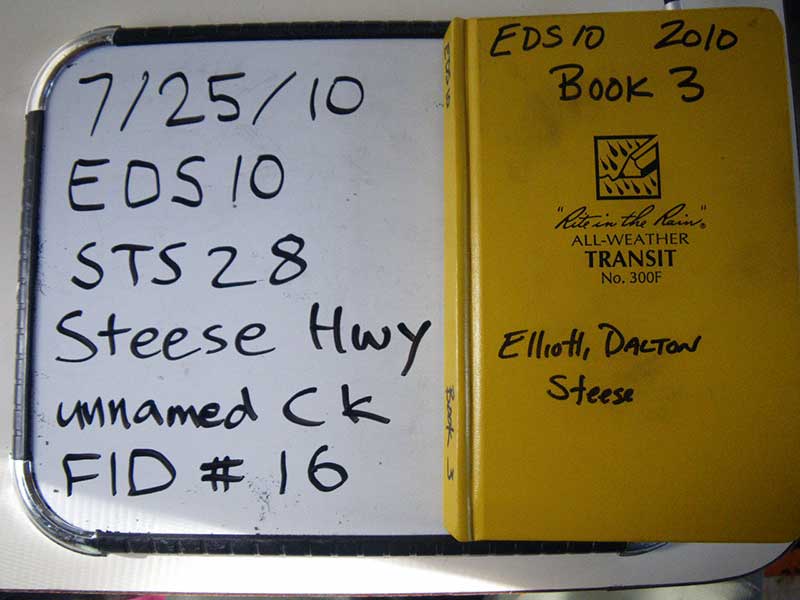 7/25/10
EDS10
STS28
Steese Hwy
unnamed Ck
FID # 16
EDS10 2010
Book 3
"Rite in the Rain"®
ALL-WEATHER
TRANSIT
No. 300F
Elliott, DALTON
Steese
EDS10
Book 3